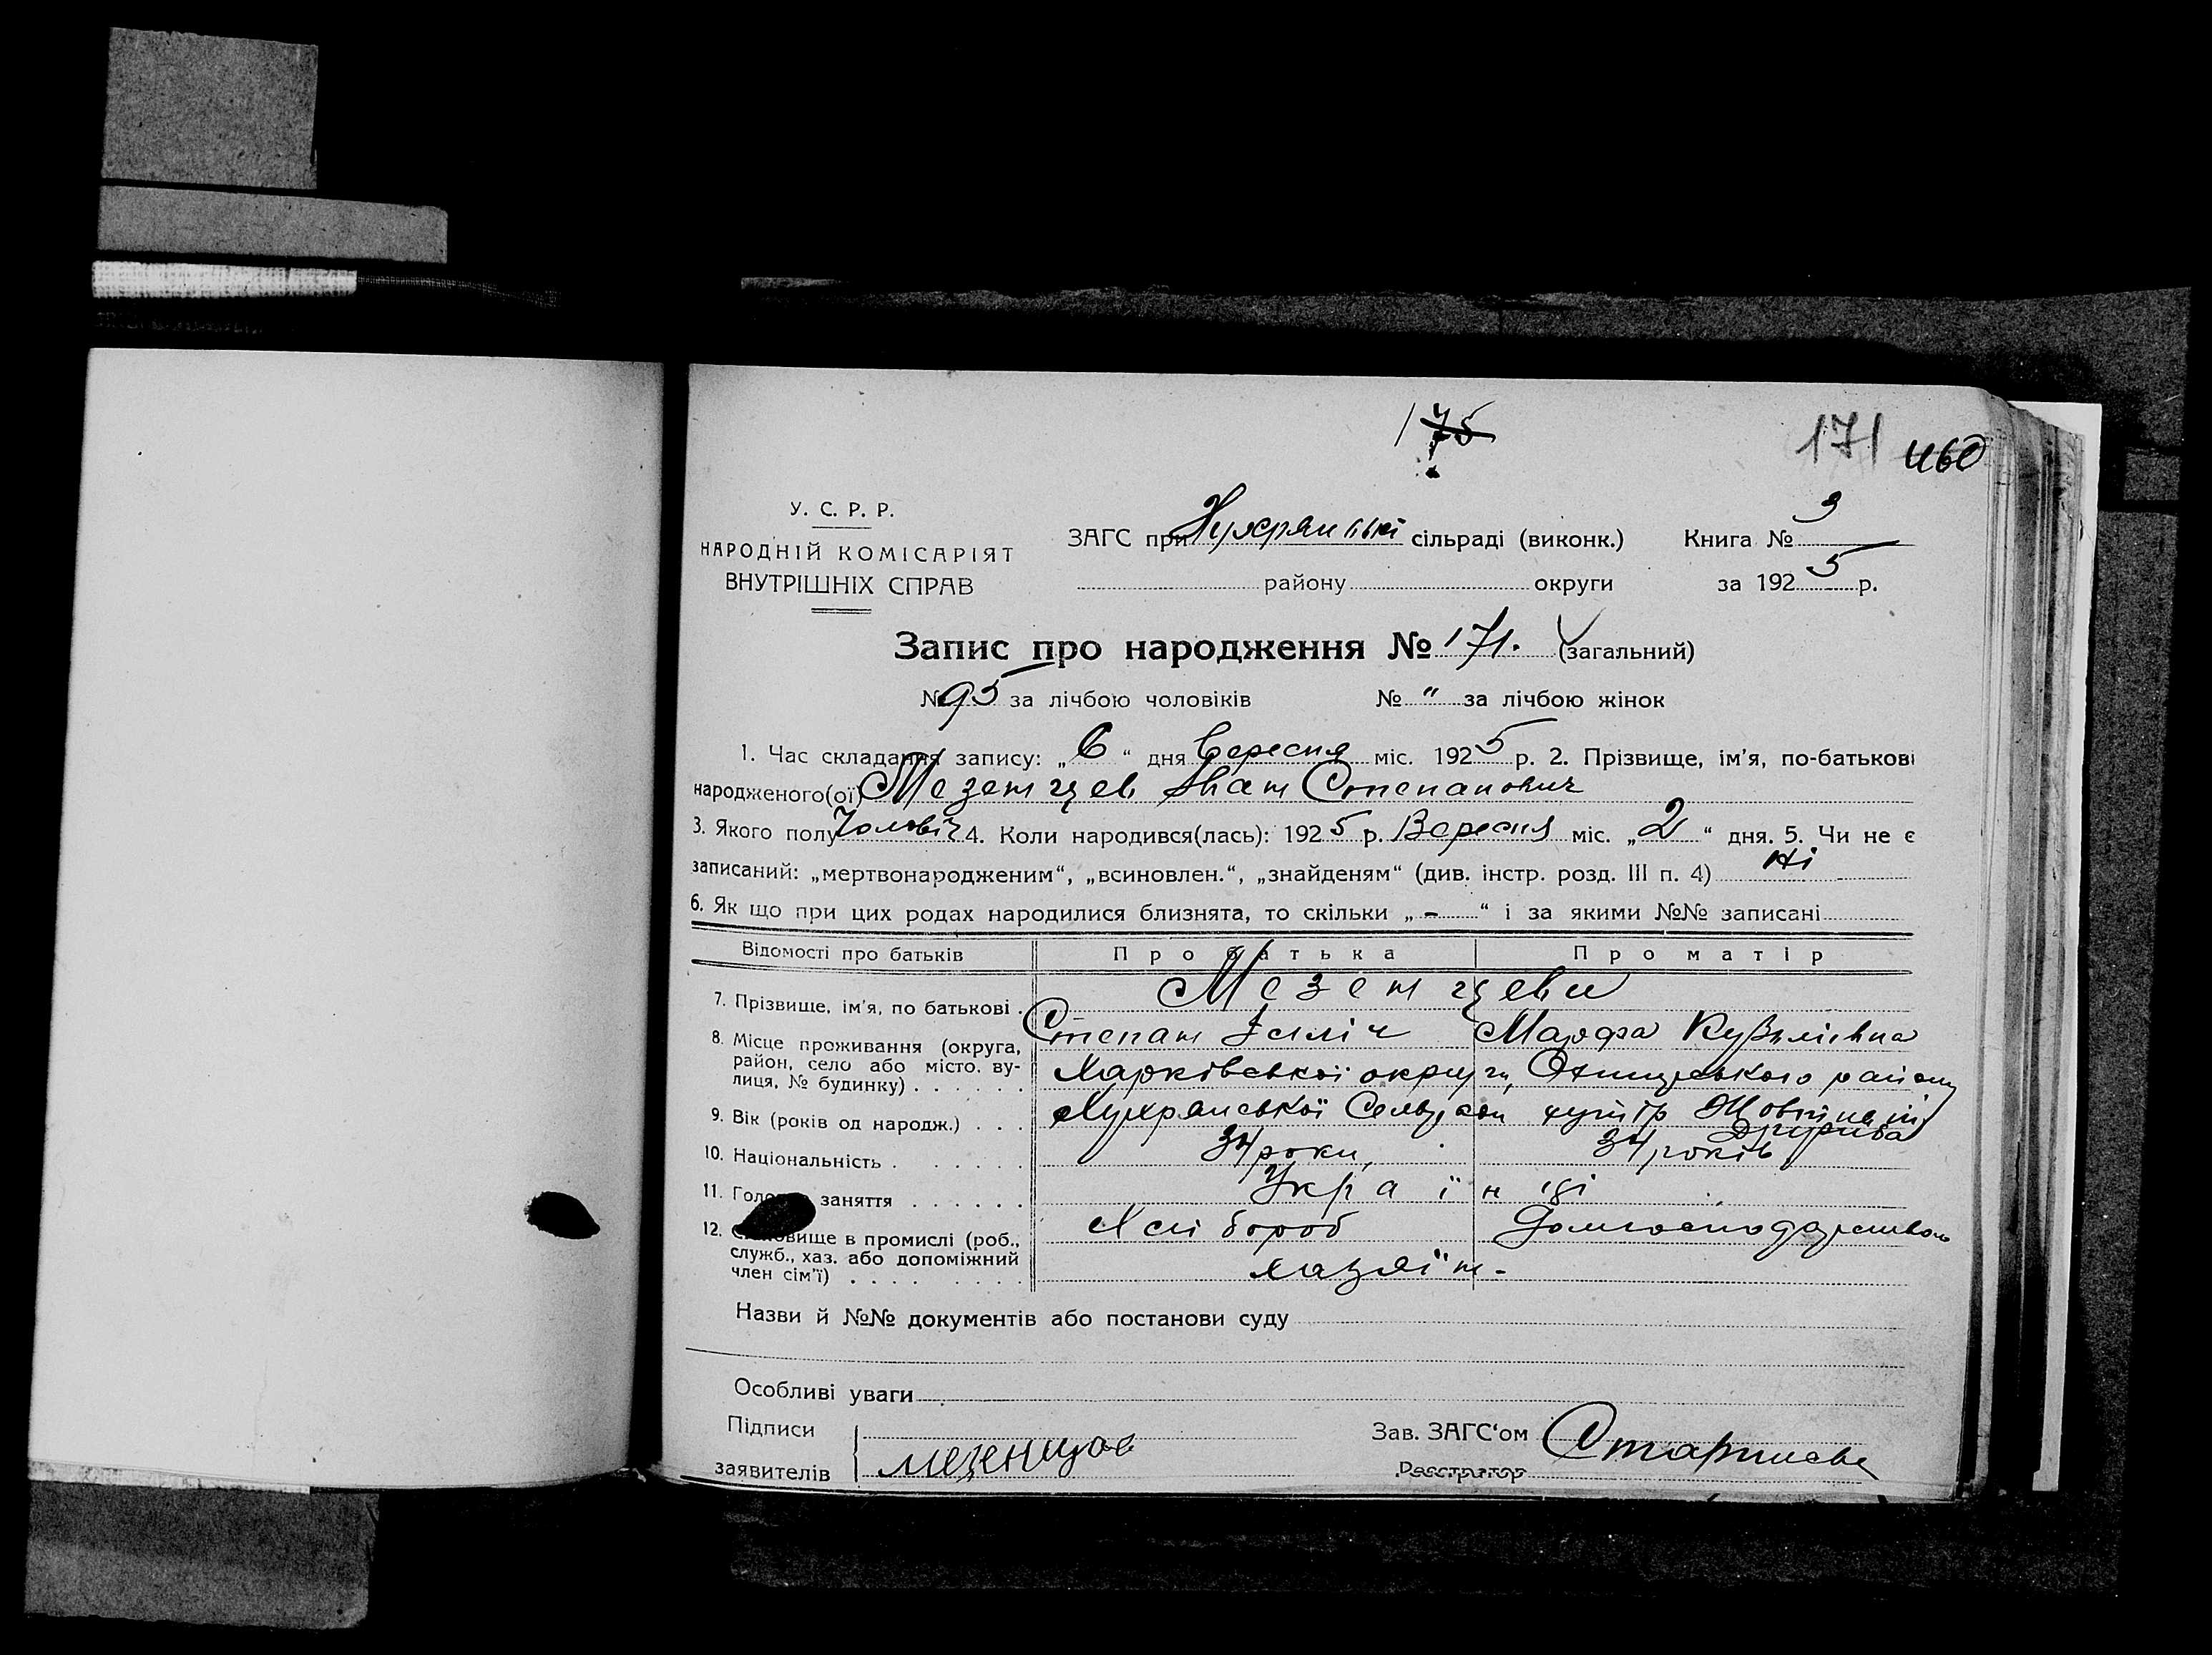 175
171 460
У. С. Р. Р.
НАРОДНІЙ КОМІСАРІЯТ
ВНУТРІШНІХ СПРАВ
ЗАГС при сільраді (виконк.) Книга № 3
району округи за 1925 р.
Запис про народження № 171. (загальний)
№ 95 за лічбою чоловіків № " за лічбою жінок
1. Час складання запису: „6“ дня Вересня міс. 1925 р. 2. Прізвище, ім'я, по-батькові
народженого(ої) Мезенцев Іван Степанович
3. Якого полу Чоловіч 4. Коли народився(лась): 1925 р. Вересня міс. „2“ дня. 5. Чи не є
записаний: „мертвонародженим“, „всиновлен.“, „знайденям“ (див. інстр. розд. III п. 4) Ні
6. Як що при цих родах народилися близнята, то скільки „-“ і за якими №№ записані
Відомості про батьків Про батька Про матір
7. Прізвище, ім'я, по батькові . Мезенцеви
Степан Ілліч Марфа Кузьмівна
8. Місце проживання (округа, район, село або місто, вулиця, № будинку) . . . . . . Харківської округи, району
хутір
9. Вік (років од народж.) . . . 34 роки, 34 років
10. Національність . . . . . . Українці
11. Головне заняття . . . . . . Хлібороб Домгосподарством
12. Становище в промислі (роб., служб., хаз. або допоміжний член сім'ї) . . . . . . . . хазяїн -
Назви й №№ документів або постанови суду
Особливі уваги
Підписи
заявителів Мезенцов
Зав. ЗАГС'ом
Реєстратор